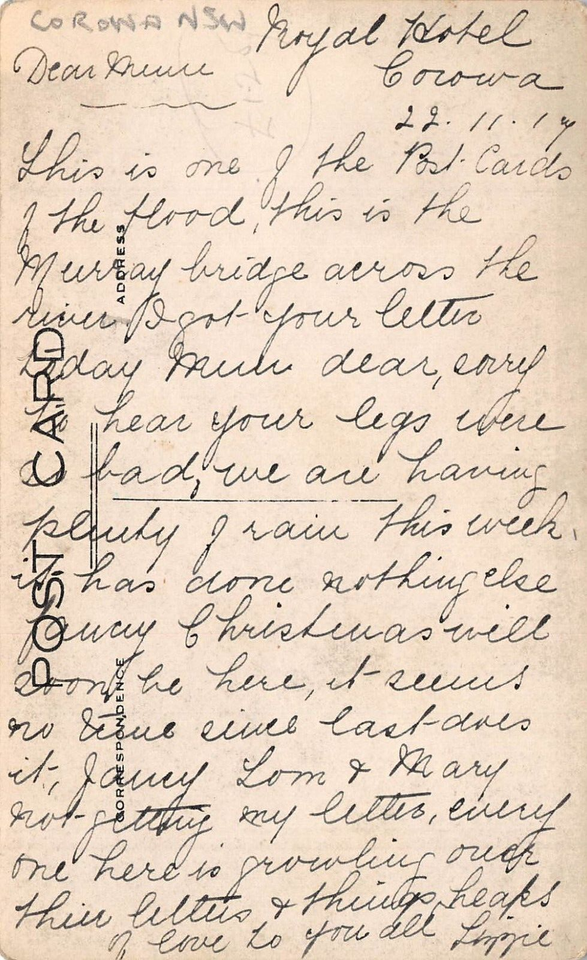 COROWA NSW
Royal Hotel
Corowa
22.11.17
Dear Mum
This is one of the Post Cards
of the flood, this is the
Murray bridge across the
river I got your letter
today Mum dear, sorry
to hear your legs were
so bad, we are having
plenty of rain this week,
it has done nothing else
fancy Christmas will
soon be here, it seems
no time since last does
it, fancy Lom & Mary
not getting my letter, every
one here is growling over
their letters & things, heaps
of love to you all Lizzie
POST CARD
ADDRESS
CORRESPONDENCE